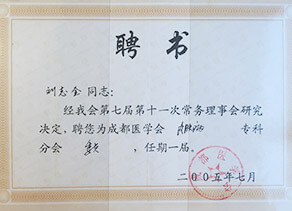 聘书
刘志全 同志:
经我会第七届第十一次常务理事会研究
决定,聘您为成都医学会 专科
分会 委员 ,任期一届。
二00五年七月